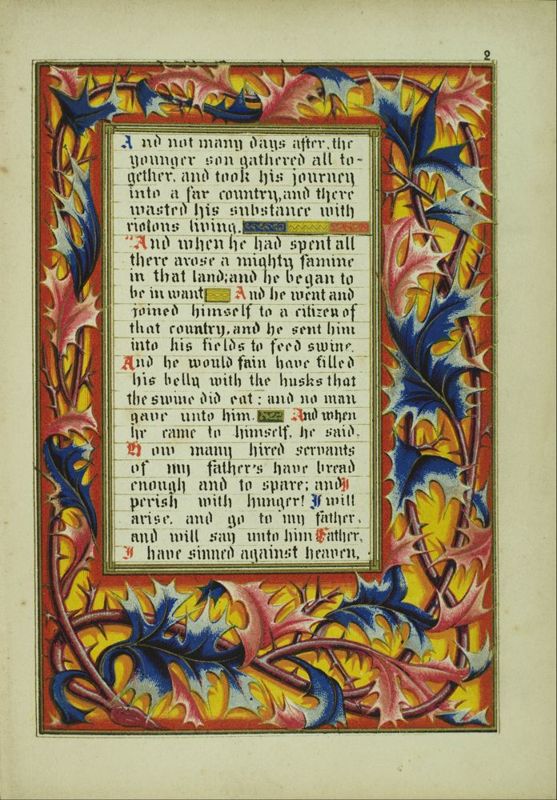 2
And not many days after, the
younger son gathered all to-
gether, and took his journey
into a far country, and there
wasted his substance with
riotous living.
"And when he had spent all
there arose a mighty famine
in that land; and he began to
be in want And he went and
joined himself to a citizen of
that country, and he sent him
into his fields to feed swine.
And he would fain have filled
his belly with the husks that
the swine did eat: and no man
gave unto him. And when
he came to himself, he said,
How many hired servants
of my father's have bread
enough and to spare; and I
perish with hunger! I will
arise, and go to my father,
and will say unto him Father,
I have sinned against heaven,